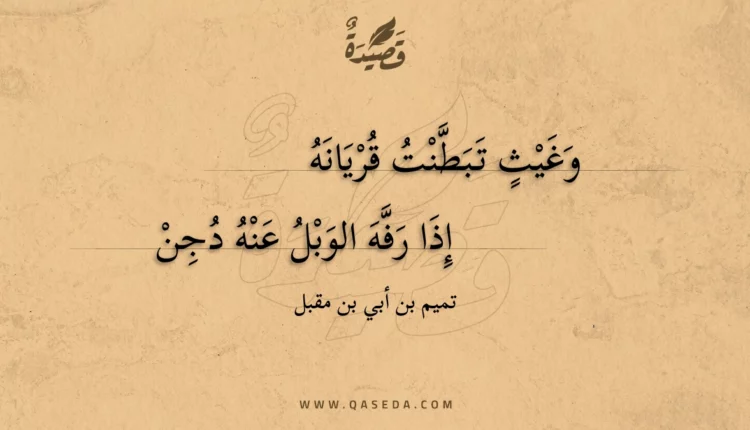 قَصِيدَةٌ
وَغَيْثٍ تَبَطَّنْتُ قُرْيَانَهُ
إِذَا رَفَّهَ الوَبْلُ عَنْهُ دُجِنْ
تميم بن أبي بن مقبل
WWW.QASEDA.COM